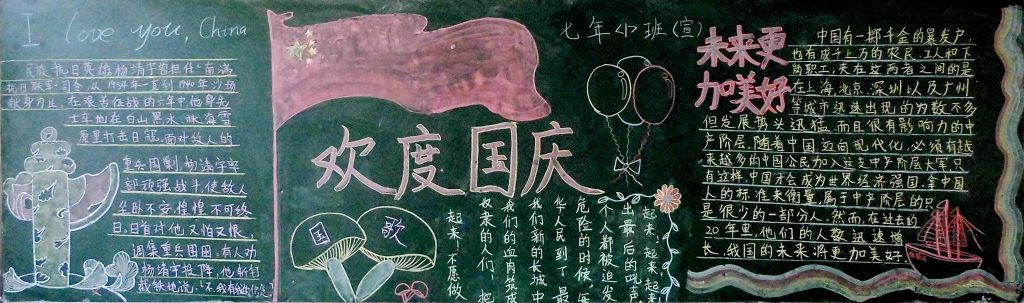 I love you, China
民族抗日英雄杨靖宇曾担任南满
抗日联军司令,从1934年一直到1940年沙场
献身为止,在艰苦征战的六年中他身先
士卒地在白山黑水,林海雪
原里打击日寇,面对敌人的
重兵围剿,杨靖宇率
部顽强战斗,使敌人
坐卧不安,惶惶不可终
日,日寇对他又怕又恨,
调集重兵围困,有人劝
杨靖宇投降,他斩钉
截铁地说:"不,我有我的信念"
七年小班(宣)
欢度国庆
国歌
起来!起来!起来
出最后的吼声
个人都被迫发
危险的时候,每
华人民到了最
我们新的长城中
我们的血肉筑成
奴隶的人们!把
起来!不愿做
未来更
加美好
中国有一掷千金的暴发户,
也有成千上万的农民、工人和下
岗职工,夹在这两者之间的是
在上海、北京、深圳以及广州
等城市迅速出现的为数不多
但发展势头迅猛,而且很有影响力的中
产阶层,随着中国迈向现代化,必须有越
来越多的中国公民加入这支中产阶层大军,只
有这样,中国才会成为世界经济强国,拿中国
人的标准来衡量,属于中产阶层的只
是很少的一部分人,然而,在过去的
20年里,他们的人数迅速增
长,我国的未来将更加美好